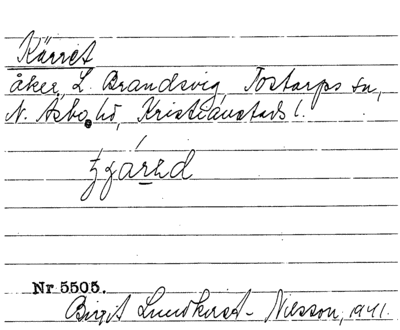 Kärret
åker, L. Brandsvig, Tostarps sn,
N. Åsbo hd, Kristianstads l.
Nr 5505.
Birgit Lundkvist-Nilsson, 1941.